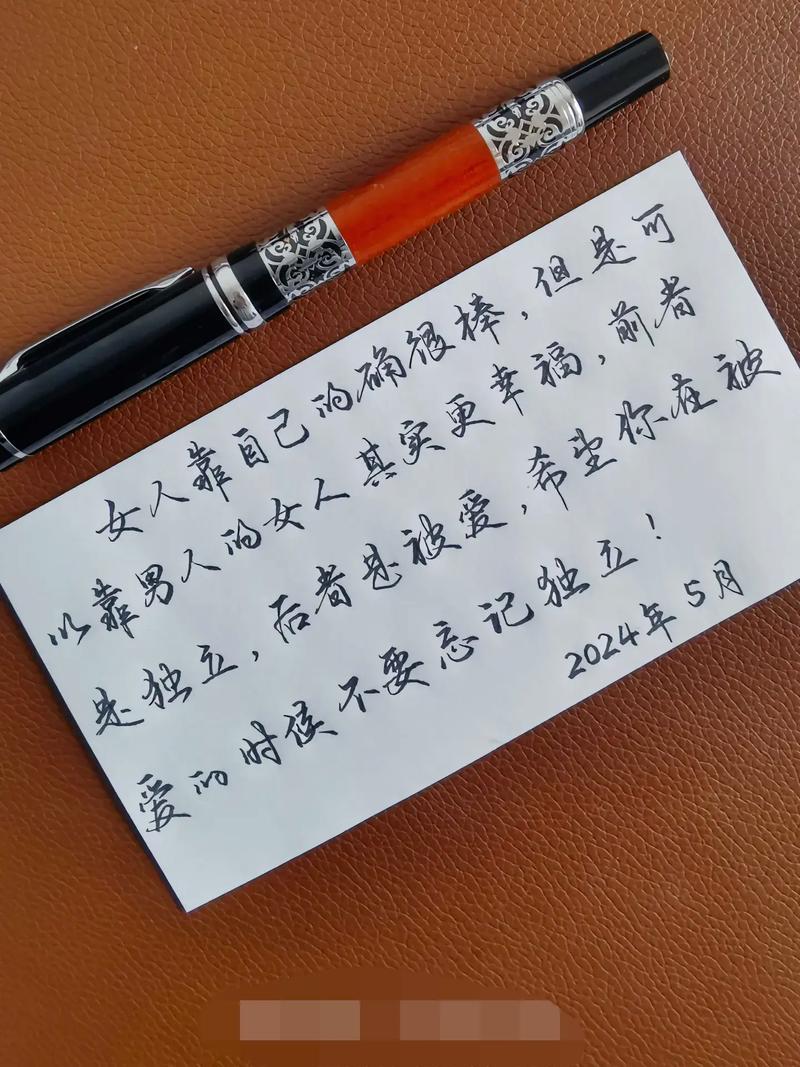 女人靠自己的确很棒，但是可
以靠男人的女人其实更幸福，前者
是独立，后者是被爱，希望你在被
爱的时候不要忘记独立！
2024年5月